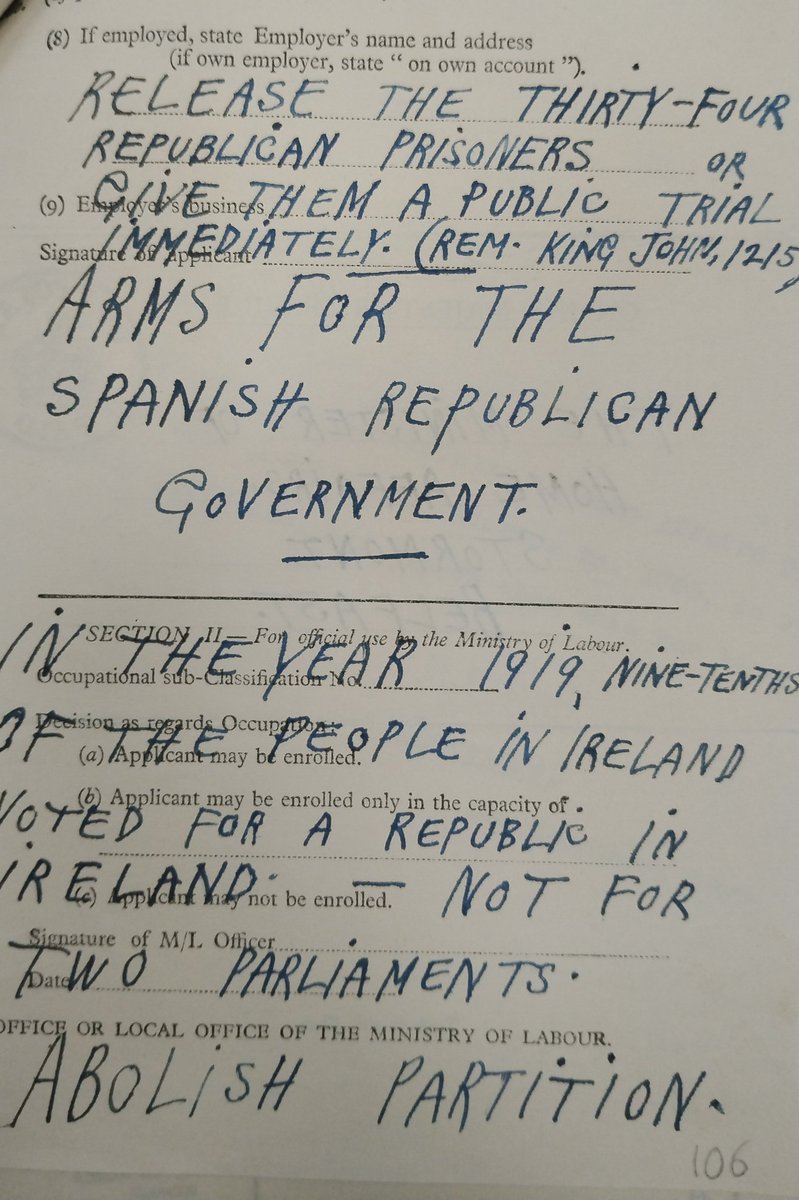 (8) If employed, state Employer's name and address
(if own employer, state "on own account").
RELEASE THE THIRTY-FOUR
REPUBLICAN PRISONERS OR
(9) Employer's business
GIVE THEM A PUBLIC TRIAL
Signature of applicant
IMMEDIATELY. (REM. KING JOHN, 1215)
ARMS FOR THE
SPANISH REPUBLICAN
GOVERNMENT.
SECTION II.—For official use by the Ministry of Labour.
IN THE YEAR 1919, NINE-TENTHS
Occupational sub-Classification No.
Decision as regards Occupation:
OF THE PEOPLE IN IRELAND
(a) Applicant may be enrolled.
(b) Applicant may be enrolled only in the capacity of
VOTED FOR A REPUBLIC IN
IRELAND. — NOT FOR
(c) Applicant may not be enrolled.
Signature of M/L Officer
TWO PARLIAMENTS.
Date
OFFICE OR LOCAL OFFICE OF THE MINISTRY OF LABOUR.
ABOLISH PARTITION.
106